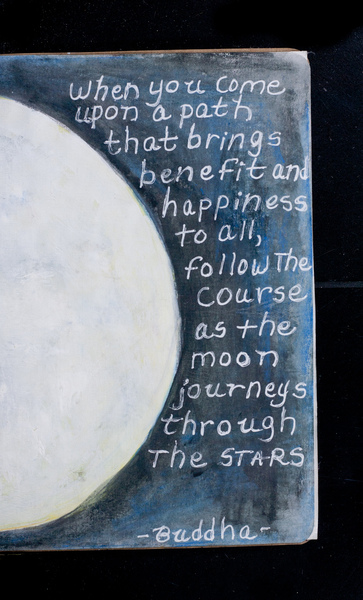 when you come
upon a path
that brings
benefit and
happiness
to all,
follow The
course
as the
moon
journeys
through
The STARS
-Buddha-